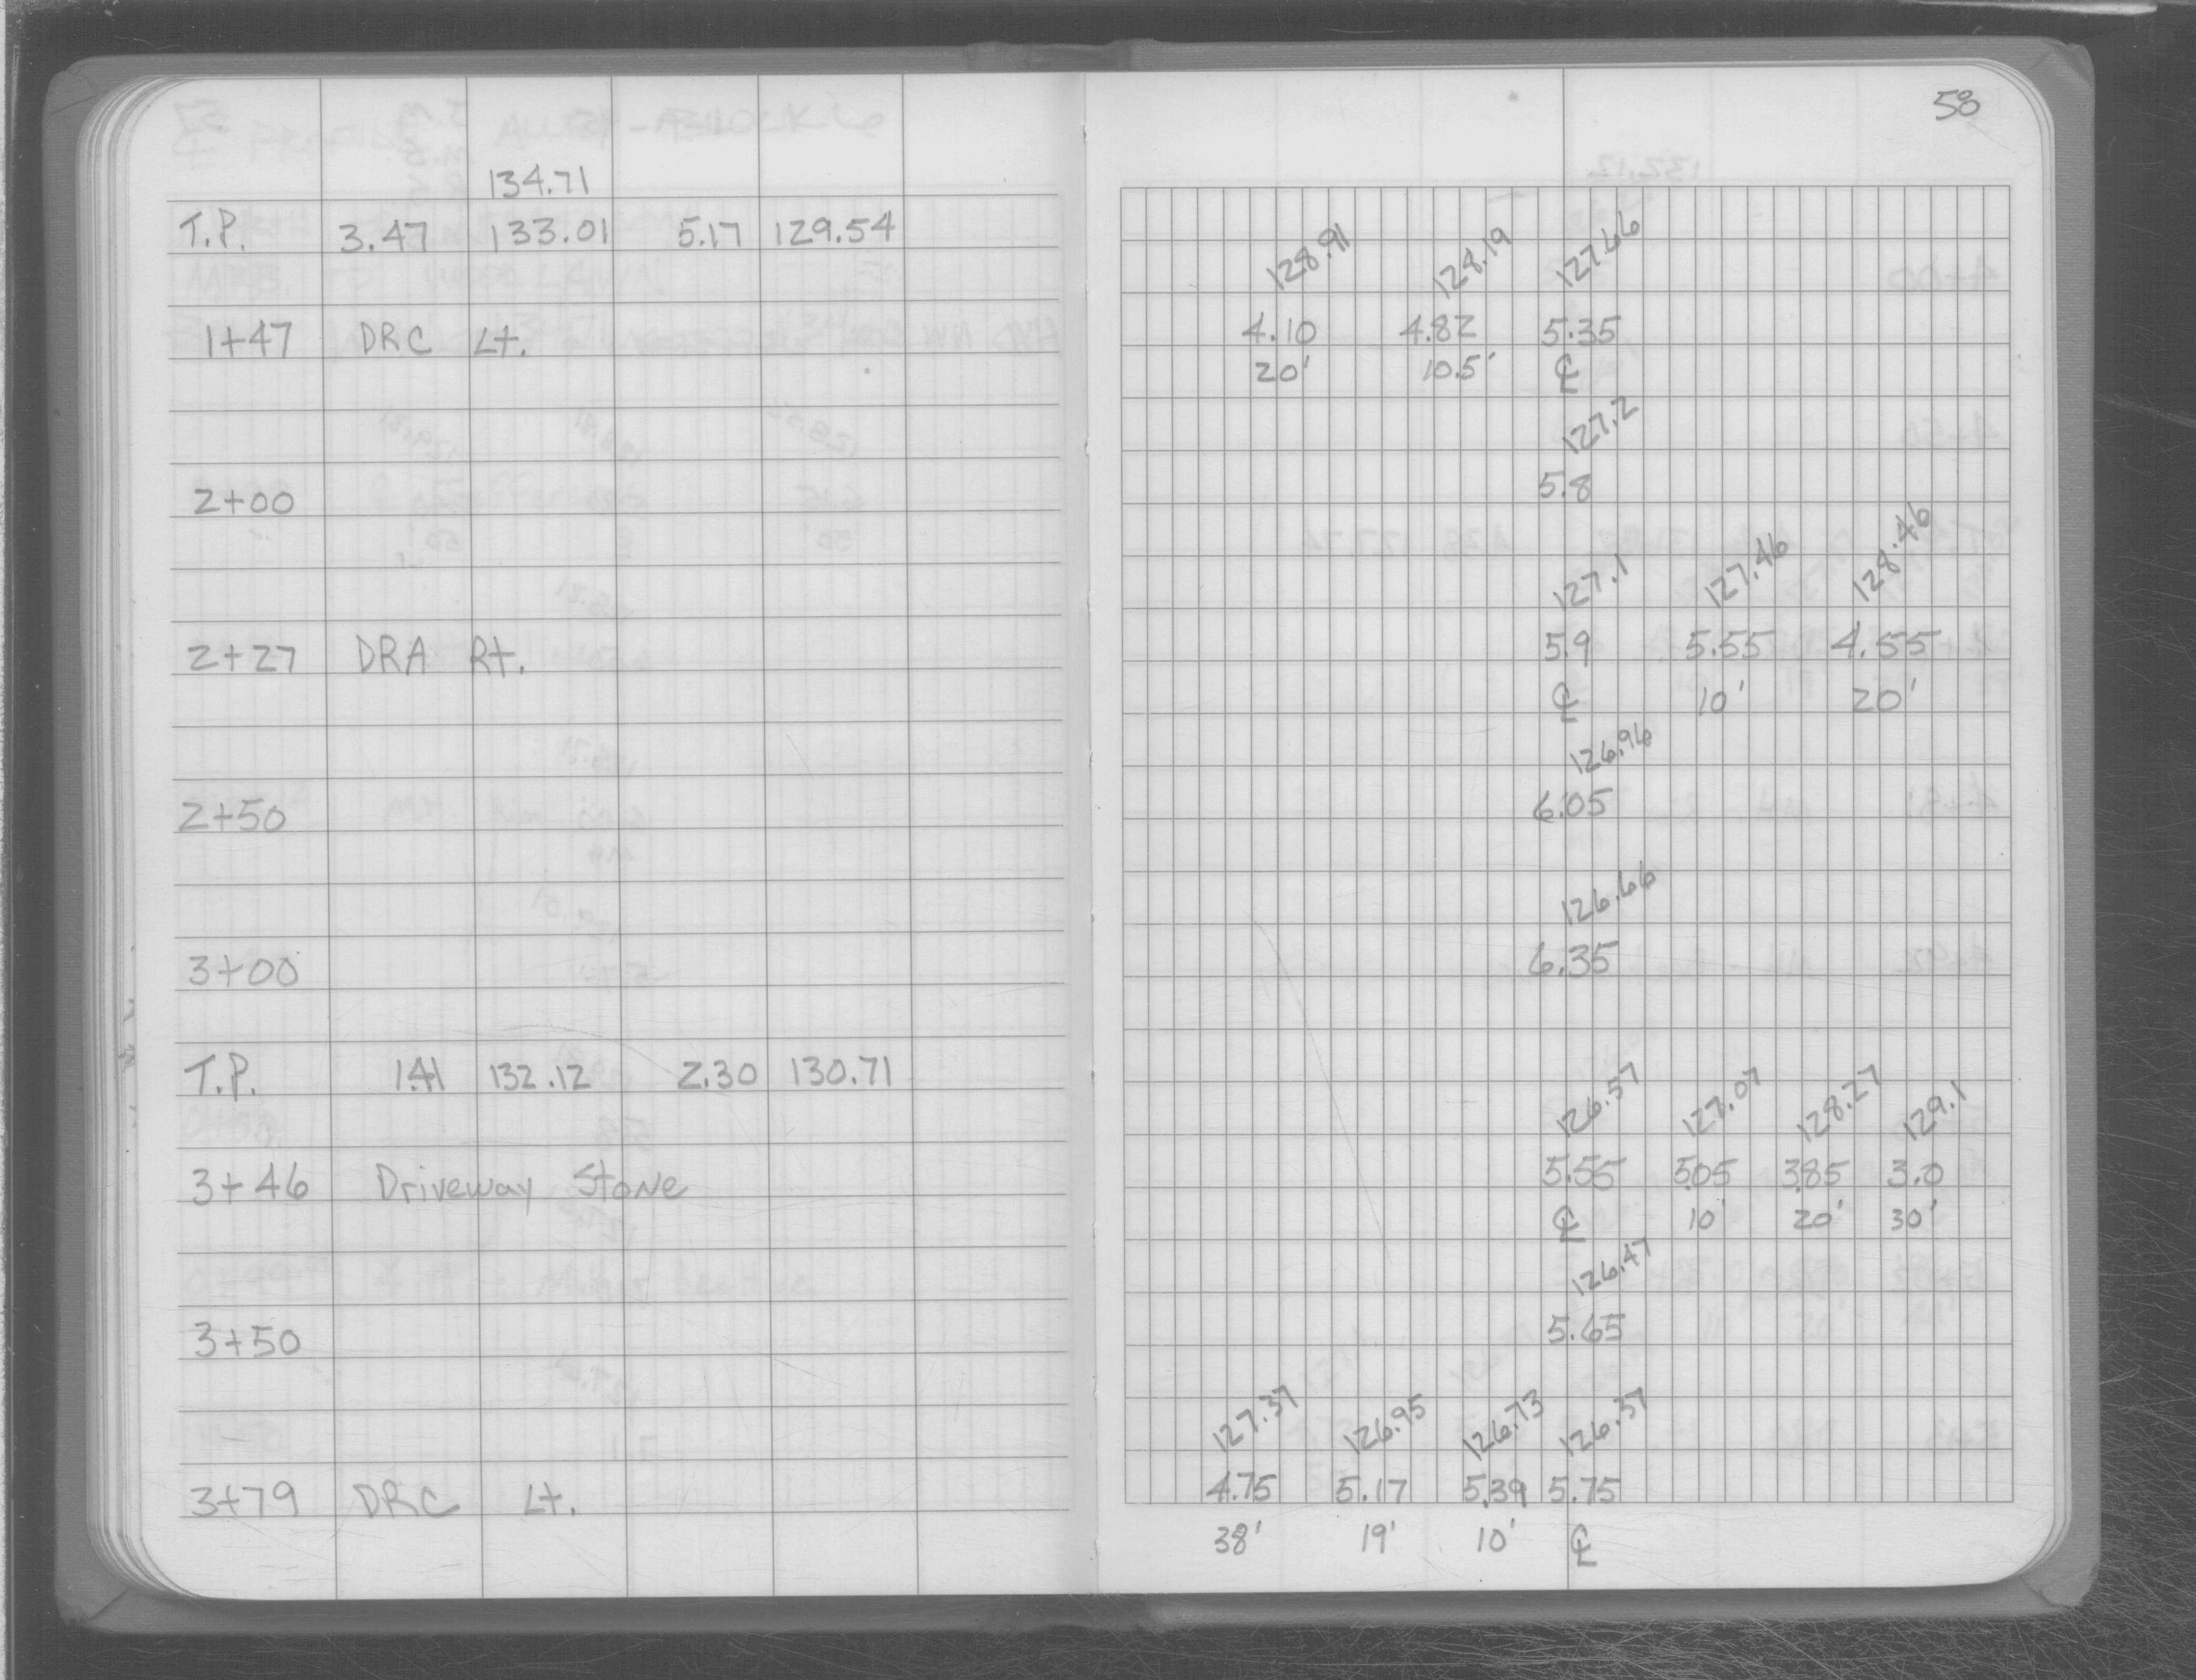 58
134.71
T.P. 3.47 133.01 5.17 129.54
128.91 128.19 127.66
1+47 DRC Lt. 4.10 4.82 5.35
20' 10.5' ℄
127.2
2+00 5.8
127.1 127.46 128.46
2+27 DRA Rt. 5.9 5.55 4.55
℄ 10' 20'
126.96
2+50 6.05
126.66
3+00 6.35
T.P. 1.41 132.12 2.30 130.71
126.57 127.07 128.27 129.1
3+46 Driveway Stone 5.55 5.05 3.85 3.0
℄ 10' 20' 30'
126.47
3+50 5.65
127.37 126.95 126.73 126.37
3+79 DRC Lt. 4.75 5.17 5.39 5.75
38' 19' 10' ℄